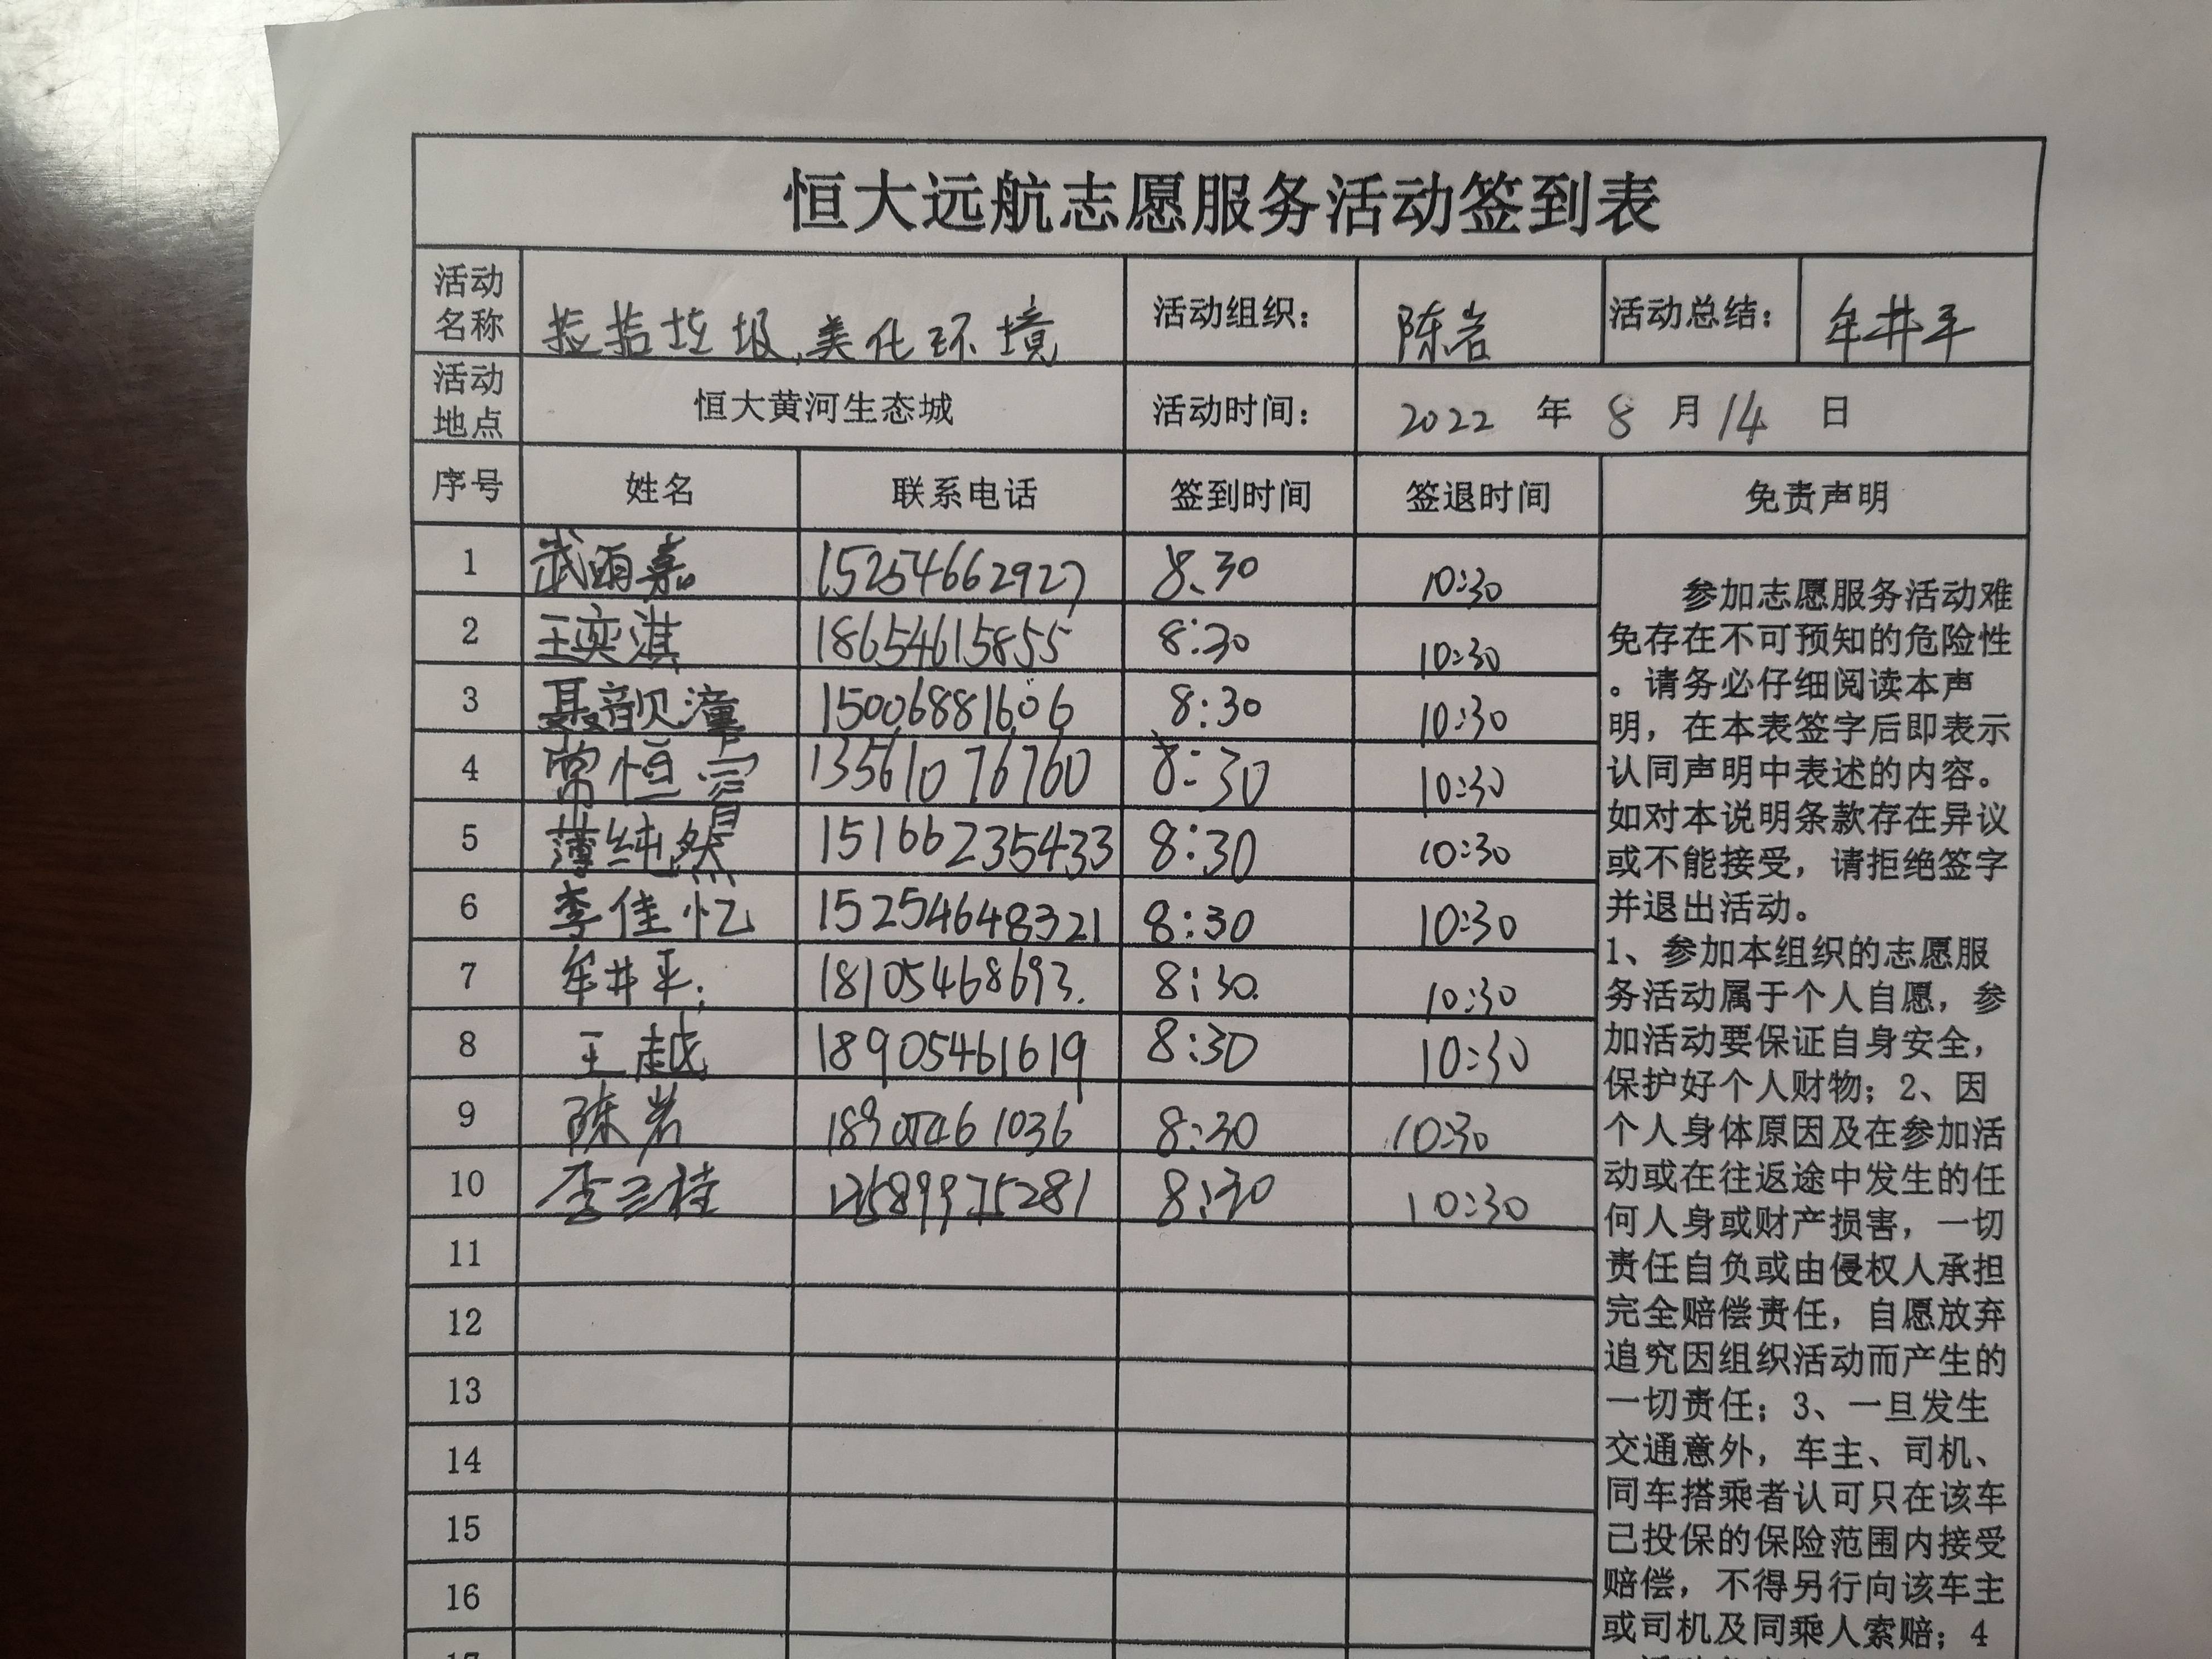 恒大远航志愿服务活动签到表
活动名称 捡拾垃圾,美化环境 活动组织: 陈岩 活动总结: 牟井平
活动地点 恒大黄河生态城 活动时间: 2022 年 8 月 14 日
序号 姓名 联系电话 签到时间 签退时间 免责声明
1 武雨嘉 15254662927 8:30 10:30
2 王奕淇 18654615855 8:30 10:30
3 聂韻潼 15006881606 8:30 10:30
4 常恒睿 13561076760 8:30 10:30
5 薄纯然 151662235433 8:30 10:30
6 李佳忆 15254648321 8:30 10:30
7 牟井平 18105468693. 8:30 10:30
8 王越 18905461619 8:30 10:30
9 陈岩 18905461036 8:30 10:30
10 李兰桂 8:30 10:30
11
12
13
14
15
16
参加志愿服务活动难
免存在不可预知的危险性
。请务必仔细阅读本声
明,在本表签字后即表示
认同声明中表述的内容。
如对本说明条款存在异议
或不能接受,请拒绝签字
并退出活动。
1、参加本组织的志愿服
务活动属于个人自愿,参
加活动要保证自身安全,
保护好个人财物;2、因
个人身体原因及在参加活
动或在往返途中发生的任
何人身或财产损害,一切
责任自负或由侵权人承担
完全赔偿责任,自愿放弃
追究因组织活动而产生的
一切责任;3、一旦发生
交通意外,车主、司机、
同车搭乘者认可只在该车
已投保的保险范围内接受
赔偿,不得另行向该车主
或司机及同乘人索赔;4